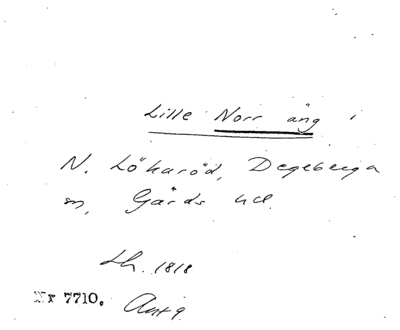 Lille Norr äng i
N. Lökaröd, Degeberga
sn, Gärds hd.
Lh. 1818
Nr 7710. Ant 9